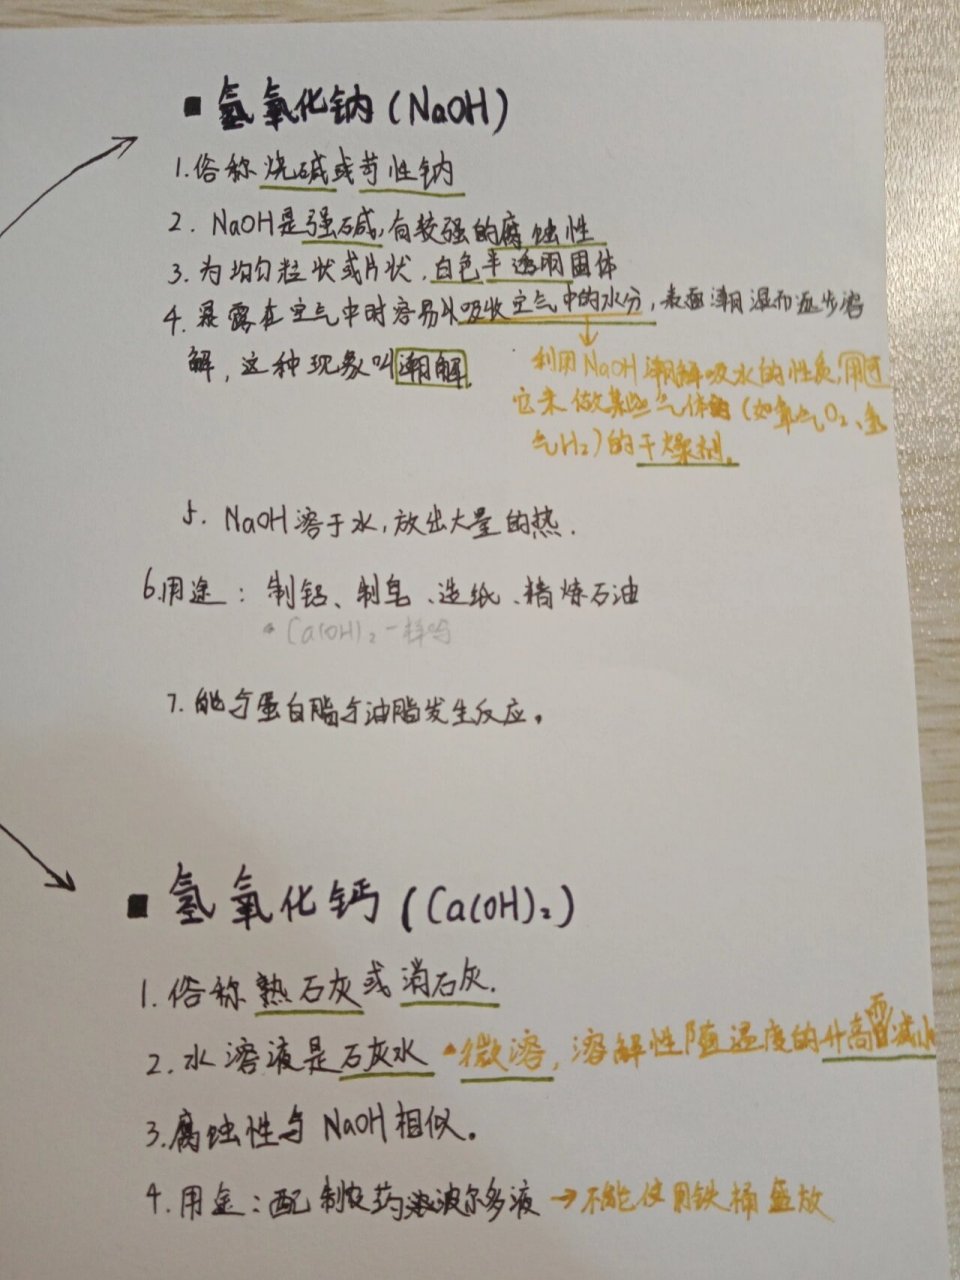 ■ 氢氧化钠(NaOH)
1.俗称烧碱或苛性钠
2. NaOH是强碱,有较强的腐蚀性
3. 为均匀粒状或片状.白色半透明固体
4. 暴露在空气中时容易从吸收空气中的水分,表面潮湿而逐步溶
解,这种现象叫潮解.
利用NaOH潮解吸水的性质,用
它来做某些气体的(如氧气O₂、氢
气H₂)的干燥剂。
5. NaOH溶于水,放出大量的热.
6.用途: 制铝、制皂、造纸、精炼石油
Ca(OH)₂一样吗
7. 能与蛋白脂与油脂发生反应。
■ 氢氧化钙(Ca(OH)₂)
1.俗称熟石灰或消石灰.
2.水溶液是石灰水 •微溶,溶解性随温度的升高而减小
3.腐蚀性与NaOH相似。
4.用途:配制农药波尔多液→不能使用铁桶盛放